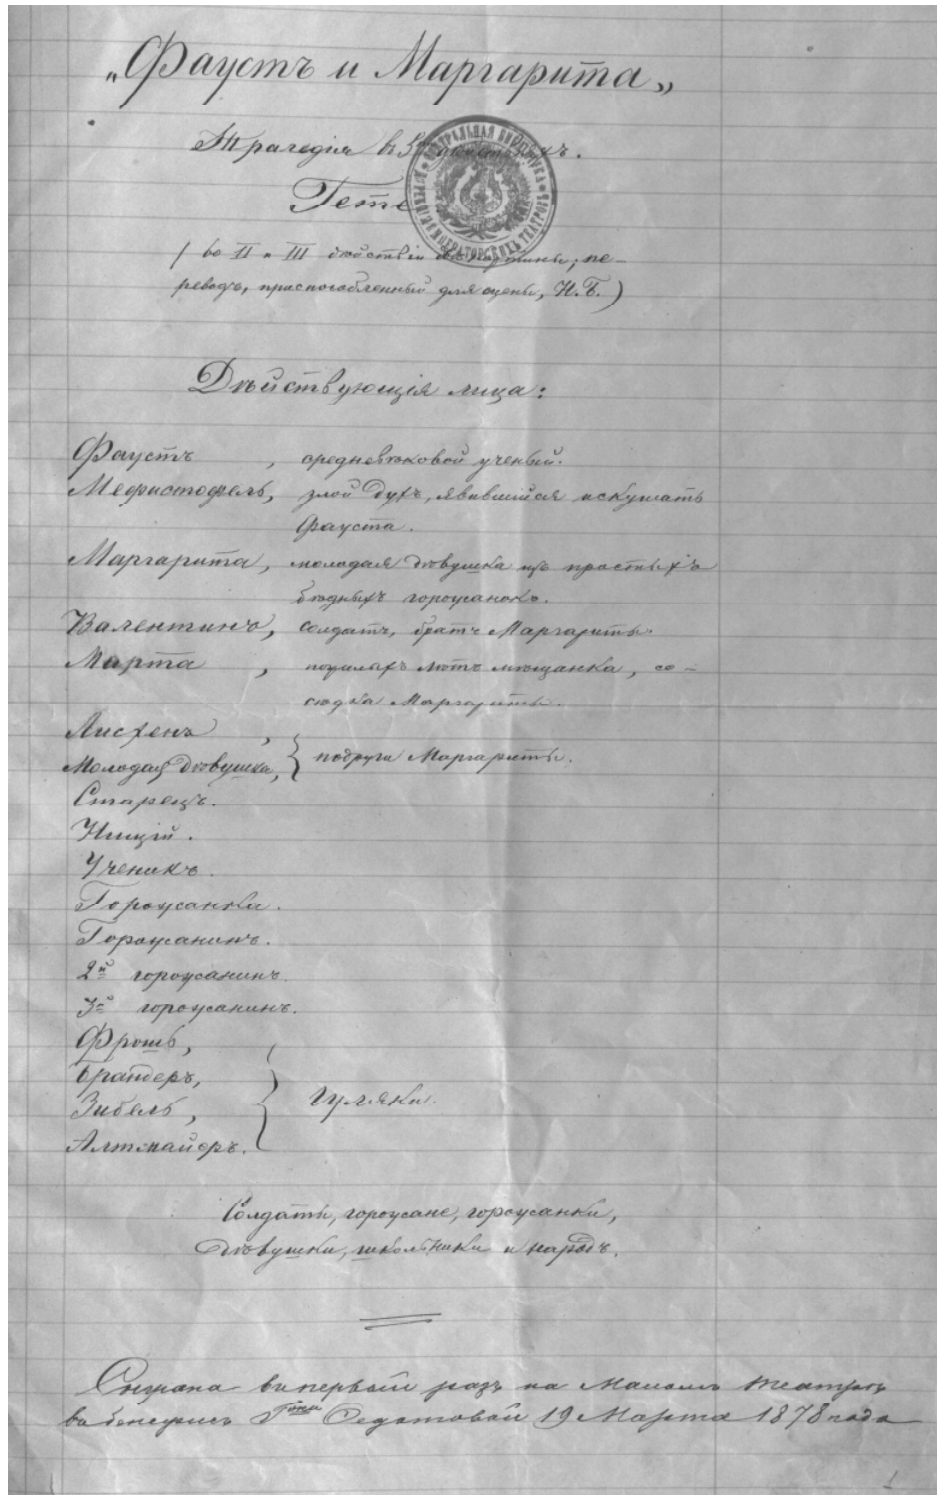 „Фаустъ и Маргарита„
Трагедія въ 5ти дѣйствіяхъ.
Гете
ЦЕНТРАЛЬНАЯ БИБЛІОТЕКА ИМПЕРАТОРСКИХЪ ТЕАТРОВЪ
(во II и III дѣйствіи картины; пе-
реводъ, приспособленный для сцены, Н. Б.)
Дѣйствующія лица:
Фаустъ, средневѣковой ученый.
Мефистофель, злой духъ, явившійся искушать
Фауста.
Маргарита, молодая дѣвушка изъ простыхъ
бѣдныхъ горожанокъ.
Валентинъ, солдатъ, братъ Маргариты.
Марта, пожилыхъ лѣтъ мѣщанка, со-
сѣдка Маргариты.
Лисхенъ,
Молодая дѣвушка, } подруги Маргариты.
Старецъ.
Нищій.
Ученикъ.
Горожанка.
Горожанинъ.
2й горожанинъ.
3й горожанинъ.
Фрошъ,
Брандеръ,
Зибель, } гуляки.
Алтмайеръ.
Солдаты, горожане, горожанки,
дѣвушки, школьники и народъ.
Сыграна въ первый разъ на Маломъ театрѣ
въ бенефисъ Гжи Федотовой 19 Марта 1878 года
1